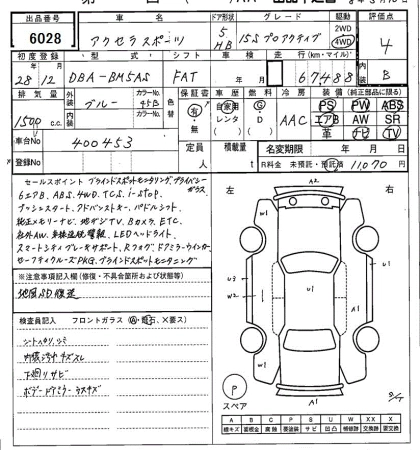 出品番号 車名 ドア形状 グレード 駆動 評価点
6028 アクセラスポーツ 5 HB 15Sプロアクティブ 2WD 4WD 4
初度登録 型式 シフト 車検 走行(km・マイル) 内装
28年12月 DBA-BM5AS FAT 年 月 67,488 B
排気量 外装 カラーNo. 色替 保証書 車歴 燃料 冷房 装備 (純正部品に限る)
1500 c.c. ブルー 45B 有 無 自家用 レンタ G D AAC PS PW ABS
エアB AW SR
革 ナビ TV
車台No. 400453
登録No.
定員 人 積載量 t 名変期限 年 月 日
R料金 未預託・預託 11,070 円
セールスポイント ブラインドスポットモニタリング プライバシーガラス
6エアB. ABS. 4WD. TCS. i-stop.
プッシュスタート. アドバンストキー. パドルシフト
純正メモリーナビ. 地デジTV. Bカメラ. ETC.
社外AW. 車線逸脱警報. LEDヘッドライト.
スマートシティブレーキサポート. Rフォグ. ドアミラーウインカー
セーフティクルーズPKG. ブラインドスポットモニタリング
※注意事項記入欄(修復・不具合箇所および状態等)
他店SD発送
検査員記入 フロントガラス (A・飛石・X要ス)
シートヘタリ、シミ
内張ヨゴレキズスレ
下廻りサビ
ボデードアミラーウスキズ
左 右
A2
W1
U3
W2
U1
U1
A1
W1
A1
P
スペア
A B C P S U W X XX
線キズ 腐食 要塗装 サビ 凹凸 補修跡 要交換 交換済